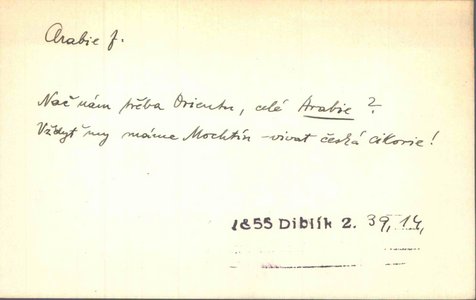 Arabie f.
Nač nám třeba Orientu, celé Arabie?
Vždyť my máme Mochtín - vivat česká cikorie!
1855 Diblík 2. 39, 14,